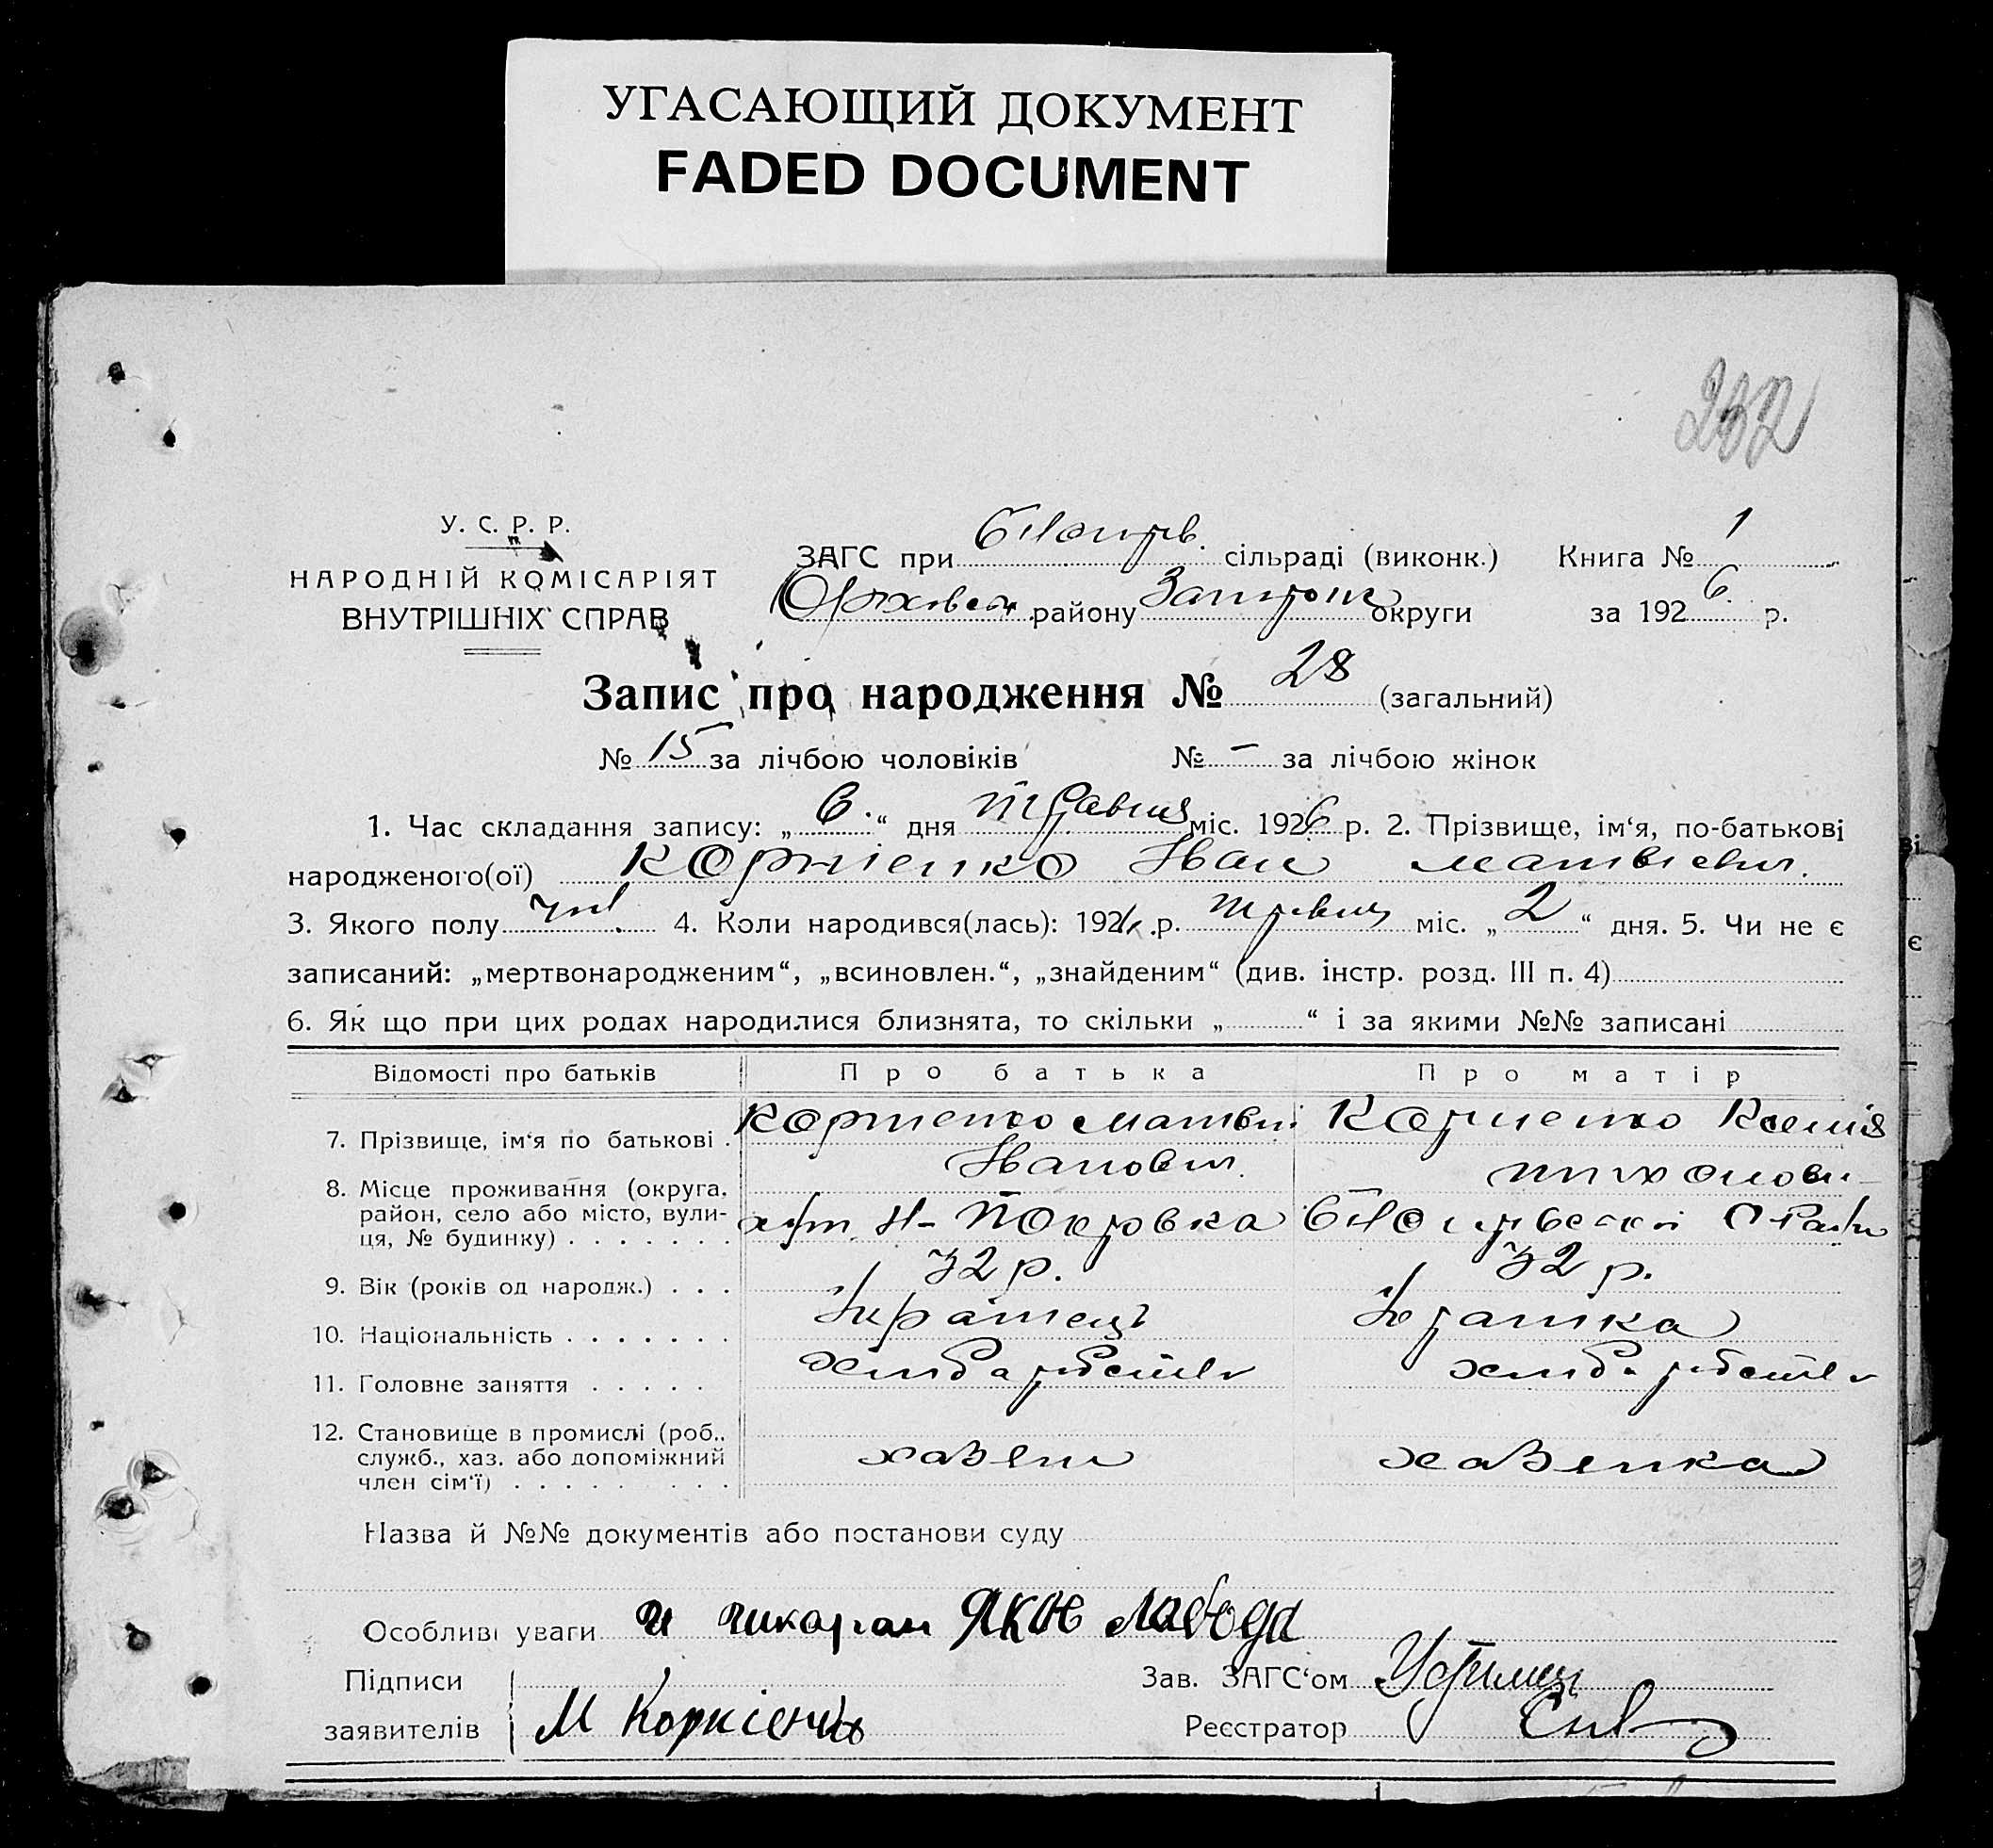 УГАСАЮЩИЙ ДОКУМЕНТ
FADED DOCUMENT
У. С. Р. Р.
НАРОДНІЙ КОМІСАРІЯТ
ВНУТРІШНІХ СПРАВ
ЗАГС при сільраді (виконк.) Книга № 1
району округи за 1926 р.
Запис про народження № 28 (загальний)
№ 15 за лічбою чоловіків № – за лічбою жінок
1. Час складання запису: „6“ дня травня міс. 1926 р. 2. Прізвище, ім‘я, по-батькові
народженого(ої) Корнієнко Іван Матвієвич.
3. Якого полу чол. 4. Коли народився(лась): 1926 .р. травня міс. „2“ дня. 5. Чи не є
записаний: „мертвонародженим“, „всиновлен.“, „знайденим“ (див. інстр. розд. III п. 4)
6. Як що при цих родах народилися близнята, то скільки „ “ і за якими №№ записані
Відомості про батьків Про батька Про матір
7. Прізвище, ім‘я по батькові . Корніенко Матвій Корніенко Ксенія
Іванович.
8. Місце проживання (округа,
район, село або місто, вули-
ця, № будинку) . . . . . . . хут. Н-Покровка
9. Вік (років од народж.) . . . 32 р. 32 р.
10. Національність . . . . . . . Українець Українка
11. Головне заняття . . . . .
12. Становище в промислі (роб.,
служб., хаз. або допоміжний
член сім‘ї) . . . . . . . . . хазяїн хазяйка
Назва й №№ документів або постанови суду
Особливі уваги Лобода
Підписи Зав. ЗАГС‘ом
заявителів М Корнієнко Реєстратор